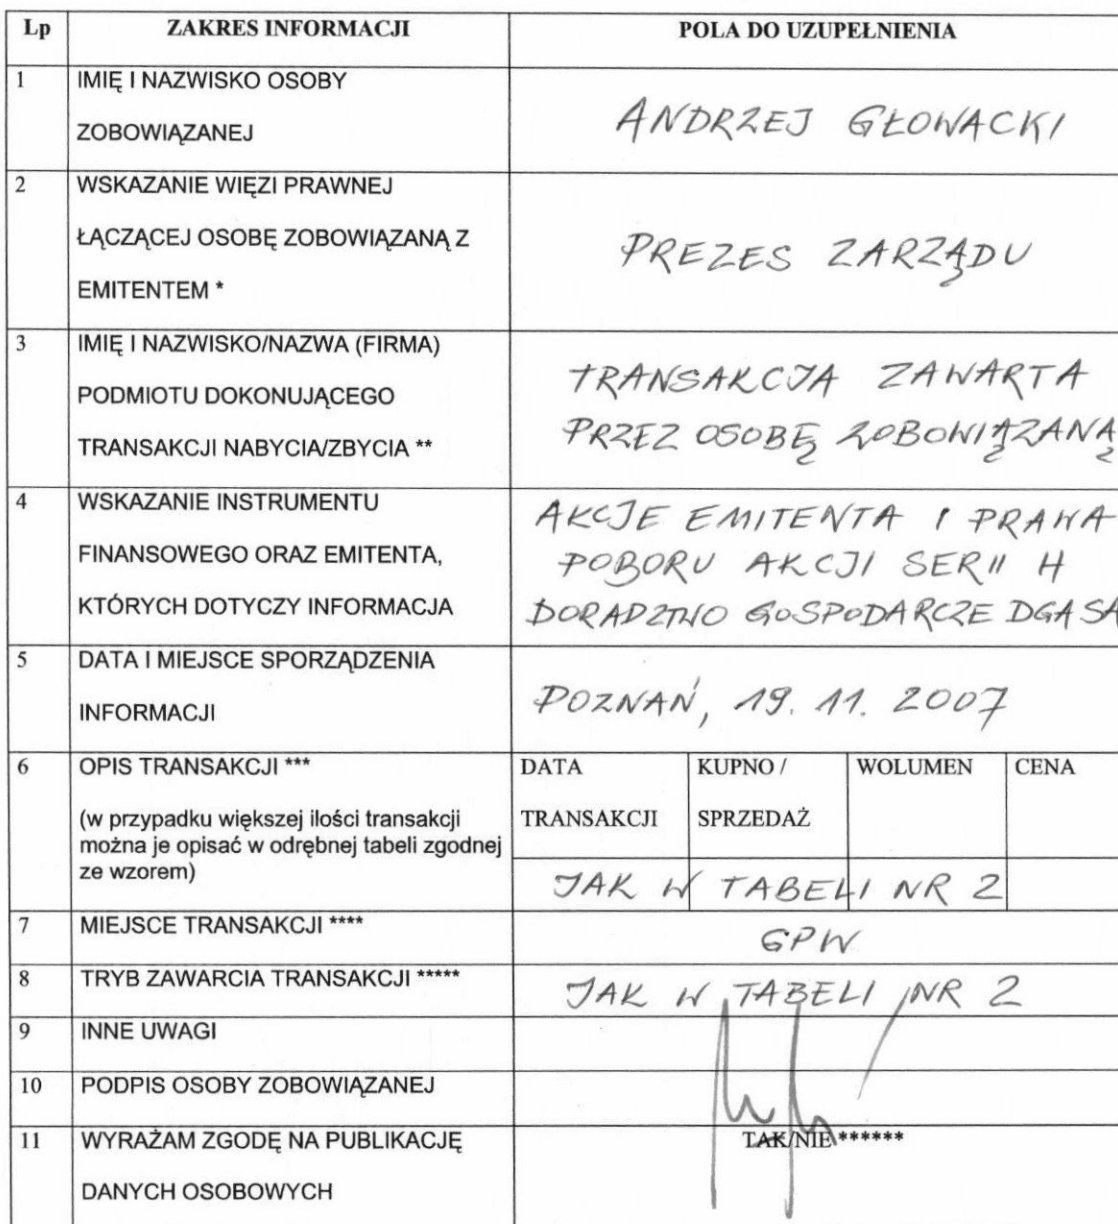 Lp ZAKRES INFORMACJI POLA DO UZUPEŁNIENIA
1 IMIĘ I NAZWISKO OSOBY
ZOBOWIĄZANEJ
ANDRZEJ GŁOWACKI
2 WSKAZANIE WIĘZI PRAWNEJ
ŁĄCZĄCEJ OSOBĘ ZOBOWIĄZANĄ Z
EMITENTEM *
PREZES ZARZĄDU
3 IMIĘ I NAZWISKO/NAZWA (FIRMA)
PODMIOTU DOKONUJĄCEGO
TRANSAKCJI NABYCIA/ZBYCIA **
TRANSAKCJA ZAWARTA
PRZEZ OSOBĘ ZOBOWIĄZANĄ
4 WSKAZANIE INSTRUMENTU
FINANSOWEGO ORAZ EMITENTA,
KTÓRYCH DOTYCZY INFORMACJA
AKCJE EMITENTA I PRAWA
POBORU AKCJI SERII H
DORADZTWO GOSPODARCZE DGA SA
5 DATA I MIEJSCE SPORZĄDZENIA
INFORMACJI
POZNAŃ, 19. 11. 2007
6 OPIS TRANSAKCJI ***
(w przypadku większej ilości transakcji
można je opisać w odrębnej tabeli zgodnej
ze wzorem)
DATA
TRANSAKCJI
KUPNO /
SPRZEDAŻ
WOLUMEN
CENA
JAK W TABELI NR 2
7 MIEJSCE TRANSAKCJI ****
GPW
8 TRYB ZAWARCIA TRANSAKCJI *****
JAK W TABELI NR 2
9 INNE UWAGI
10 PODPIS OSOBY ZOBOWIĄZANEJ
11 WYRAŻAM ZGODĘ NA PUBLIKACJĘ
DANYCH OSOBOWYCH
TAK/NIE ******